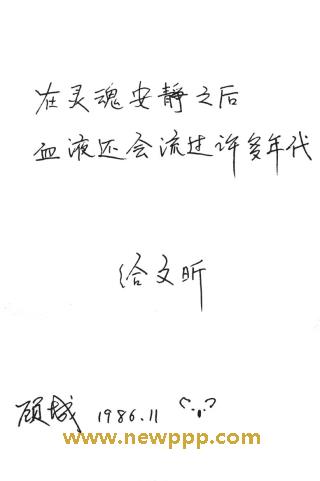 在灵魂安静之后
血液还会流过许多年代
给文昕
顾城 1986.11
www.newppp.com